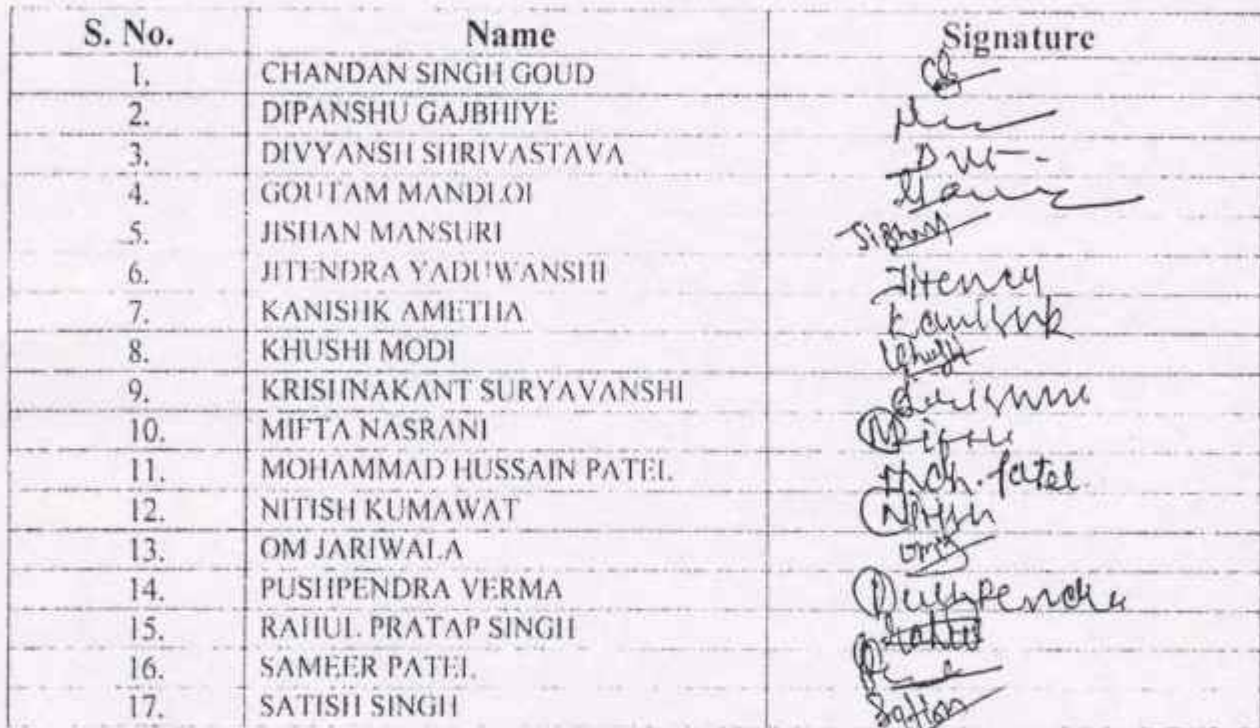 S. No. Name Signature
1. CHANDAN SINGH GOUD
2. DIPANSHU GAJBHIYE
3. DIVYANSH SHRIVASTAVA
4. GOUTAM MANDLOI
5. JISHAN MANSURI
6. JITENDRA YADUWANSHI
7. KANISHK AMETHA Kanishk
8. KHUSHI MODI
9. KRISHNAKANT SURYAVANSHI
10. MIFTA NASRANI
11. MOHAMMAD HUSSAIN PATEL Moh. Patel
12. NITISH KUMAWAT Nitish
13. OM JARIWALA
14. PUSHPENDRA VERMA Pushpendra
15. RAHUL PRATAP SINGH
16. SAMEER PATEL
17. SATISH SINGH